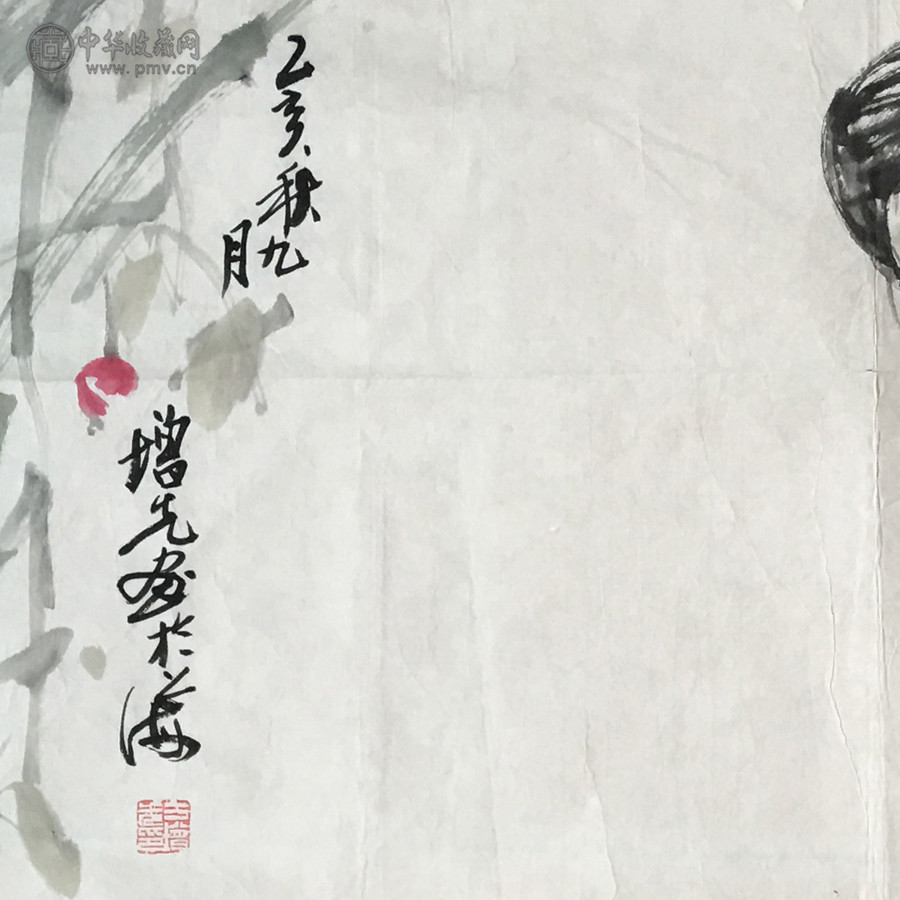 中华收藏网
www.pmv.cn
乙亥秋九
月
增先画於上海